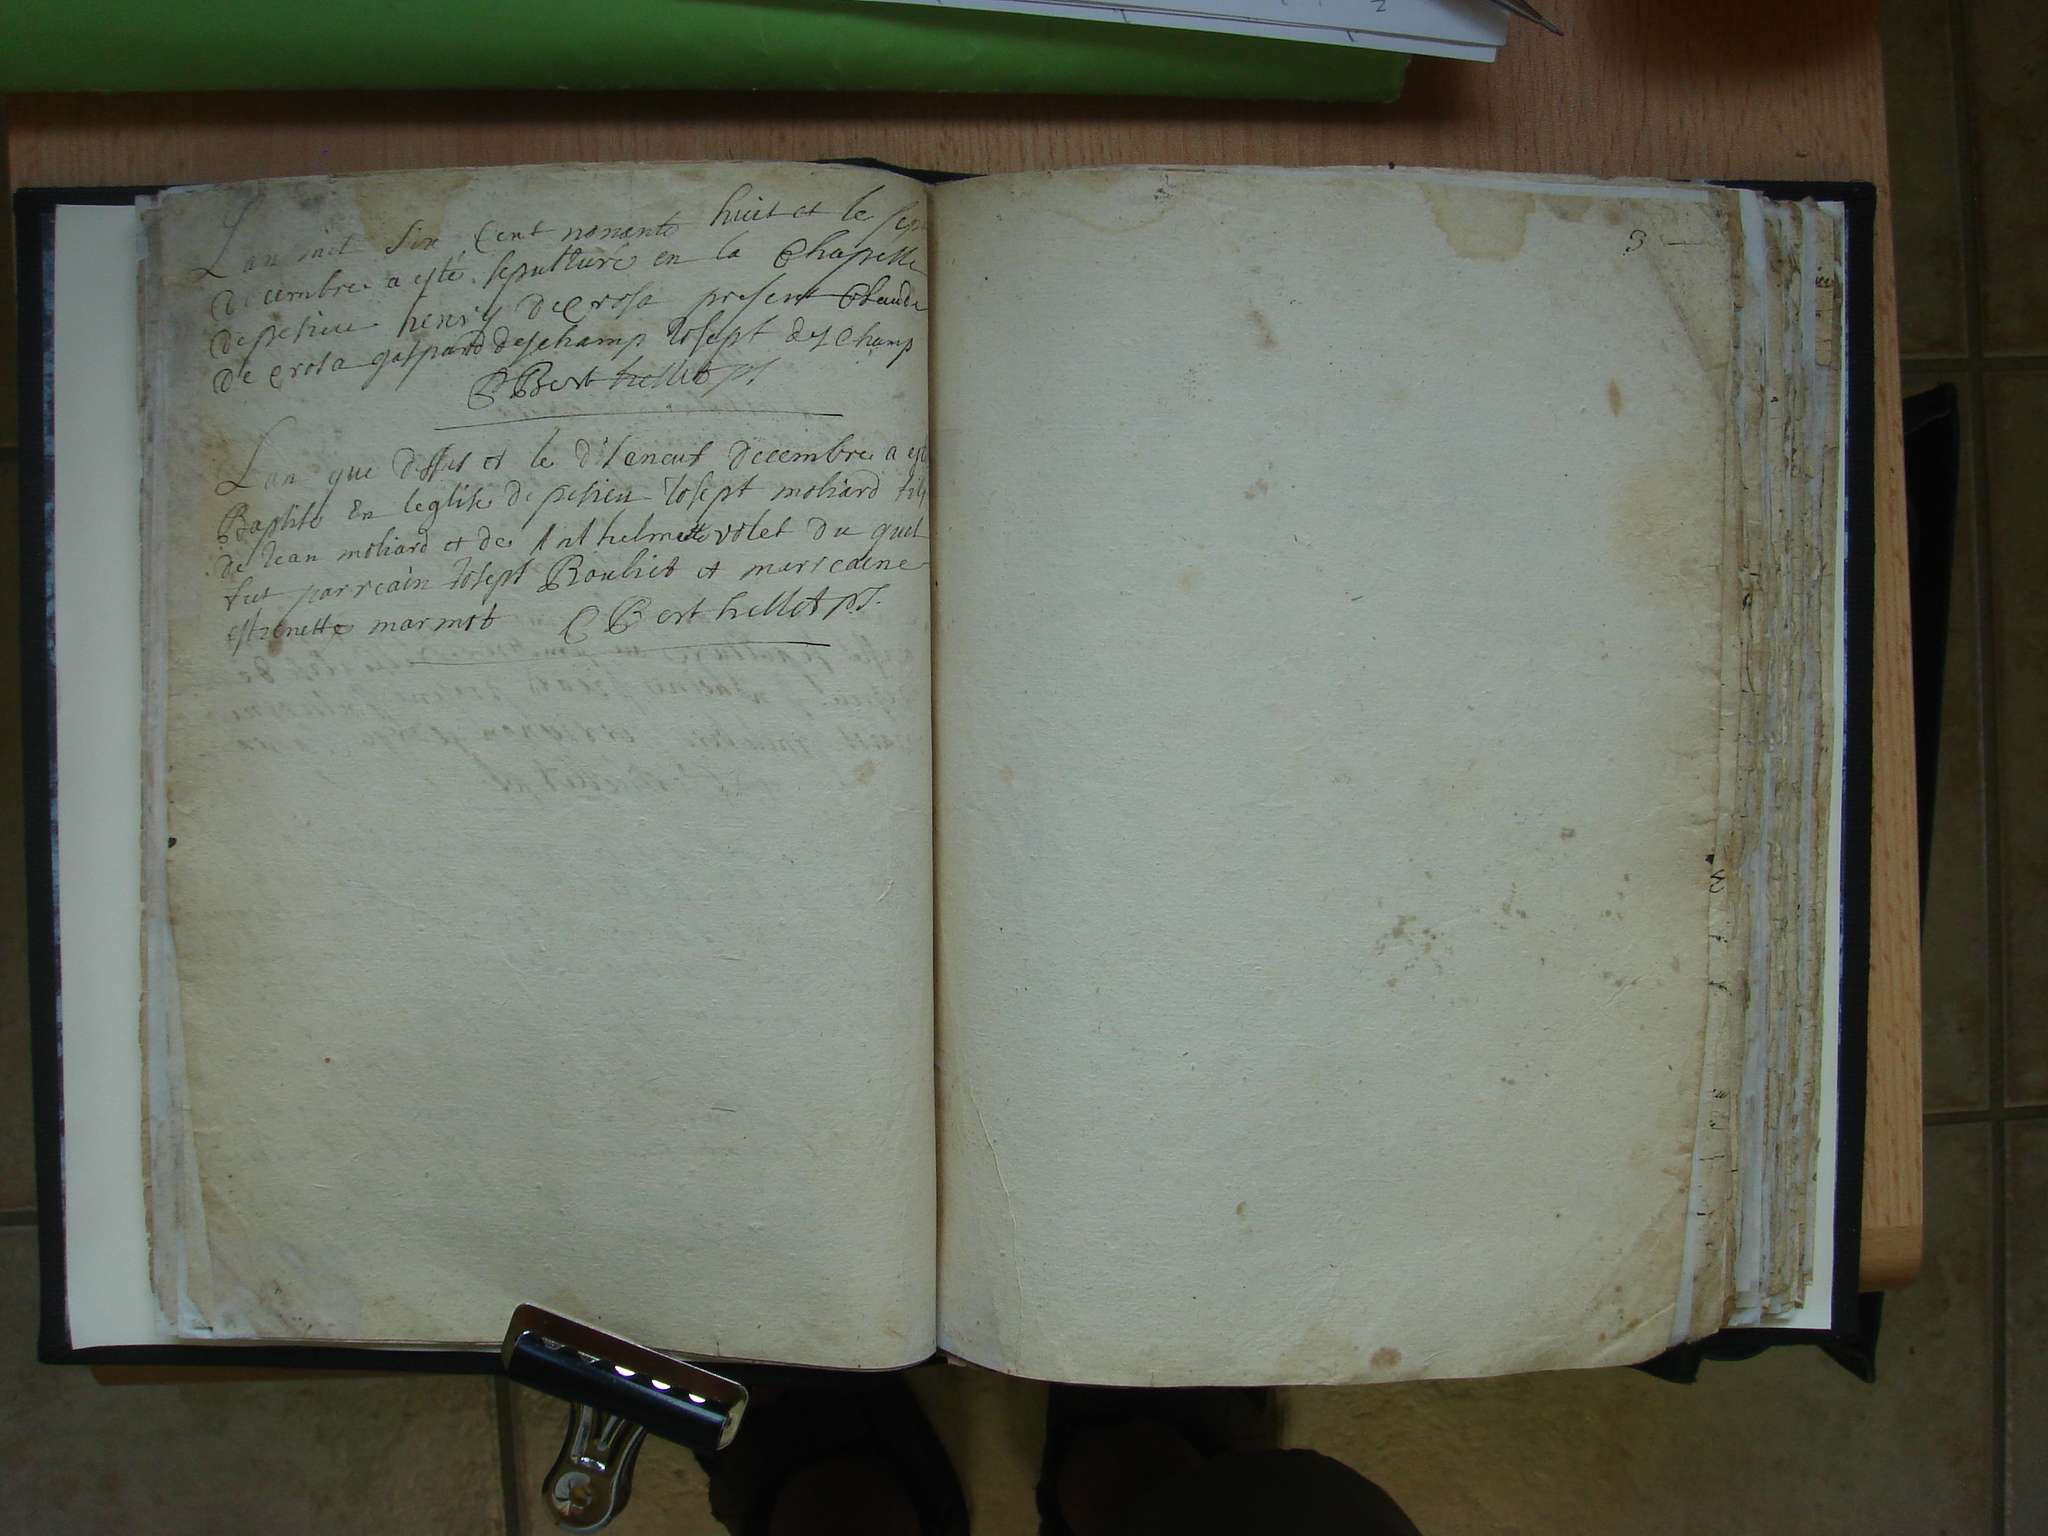 Lan mil six Cent nonante huit et le sept
decembre a esté sepulturé en la Chapelle
de pesieu henry de Crosa present Claude
de Crosa gaspard deschamp Josept deschamp
C Berthellet pt
Lan que dessus et le diseneuf decembre a esté
Baptisé En leglise de pesieu Josept moliard fils
de Jean moliard et de Anthelmette volet du quel
fut parrain Josept Boubiet et marraine
estienette marmot C Berthellet pt.
3